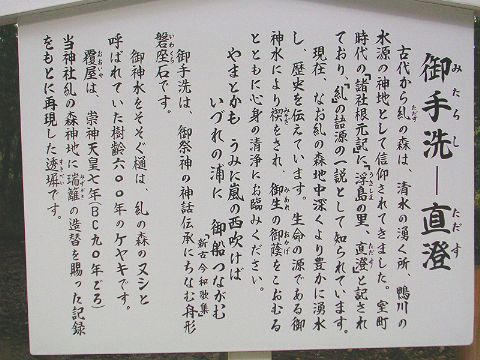 御手洗―直澄
みたらし
ただす
古代から糺の森は、清水の湧く所、鴨川の
ただす
水源の神地として信仰されてきました。室町
時代の『諸社根元記』に「浮島の里、直澄」と記され
うきしま
ただす
ており、「糺」の語源の一説として知られています。
現在、なお糺の森地中深くより豊かに湧水
し、歴史を伝えています。生命の源である御
神水により禊をされ、御生の御蔭をこおむる
みそぎ
みあれ
おかげ
とともに心身の清浄にお臨みください。
やまとかも うみに嵐の西吹けば
いづれの浦に 御船つながむ
「新古今和歌集」
御手洗は、御祭神の神話伝承にちなむ舟形
みたらし
磐座石です。
いわくら
御神水をそそぐ樋は、糺の森のヌシと
呼ばれていた樹齢六〇〇年のケヤキです。
覆屋は、崇神天皇七年(BC九〇年ごろ)
おおいや
当神社糺の森神地に瑞籬の造督を賜った記録
をもとに再現した透塀です。